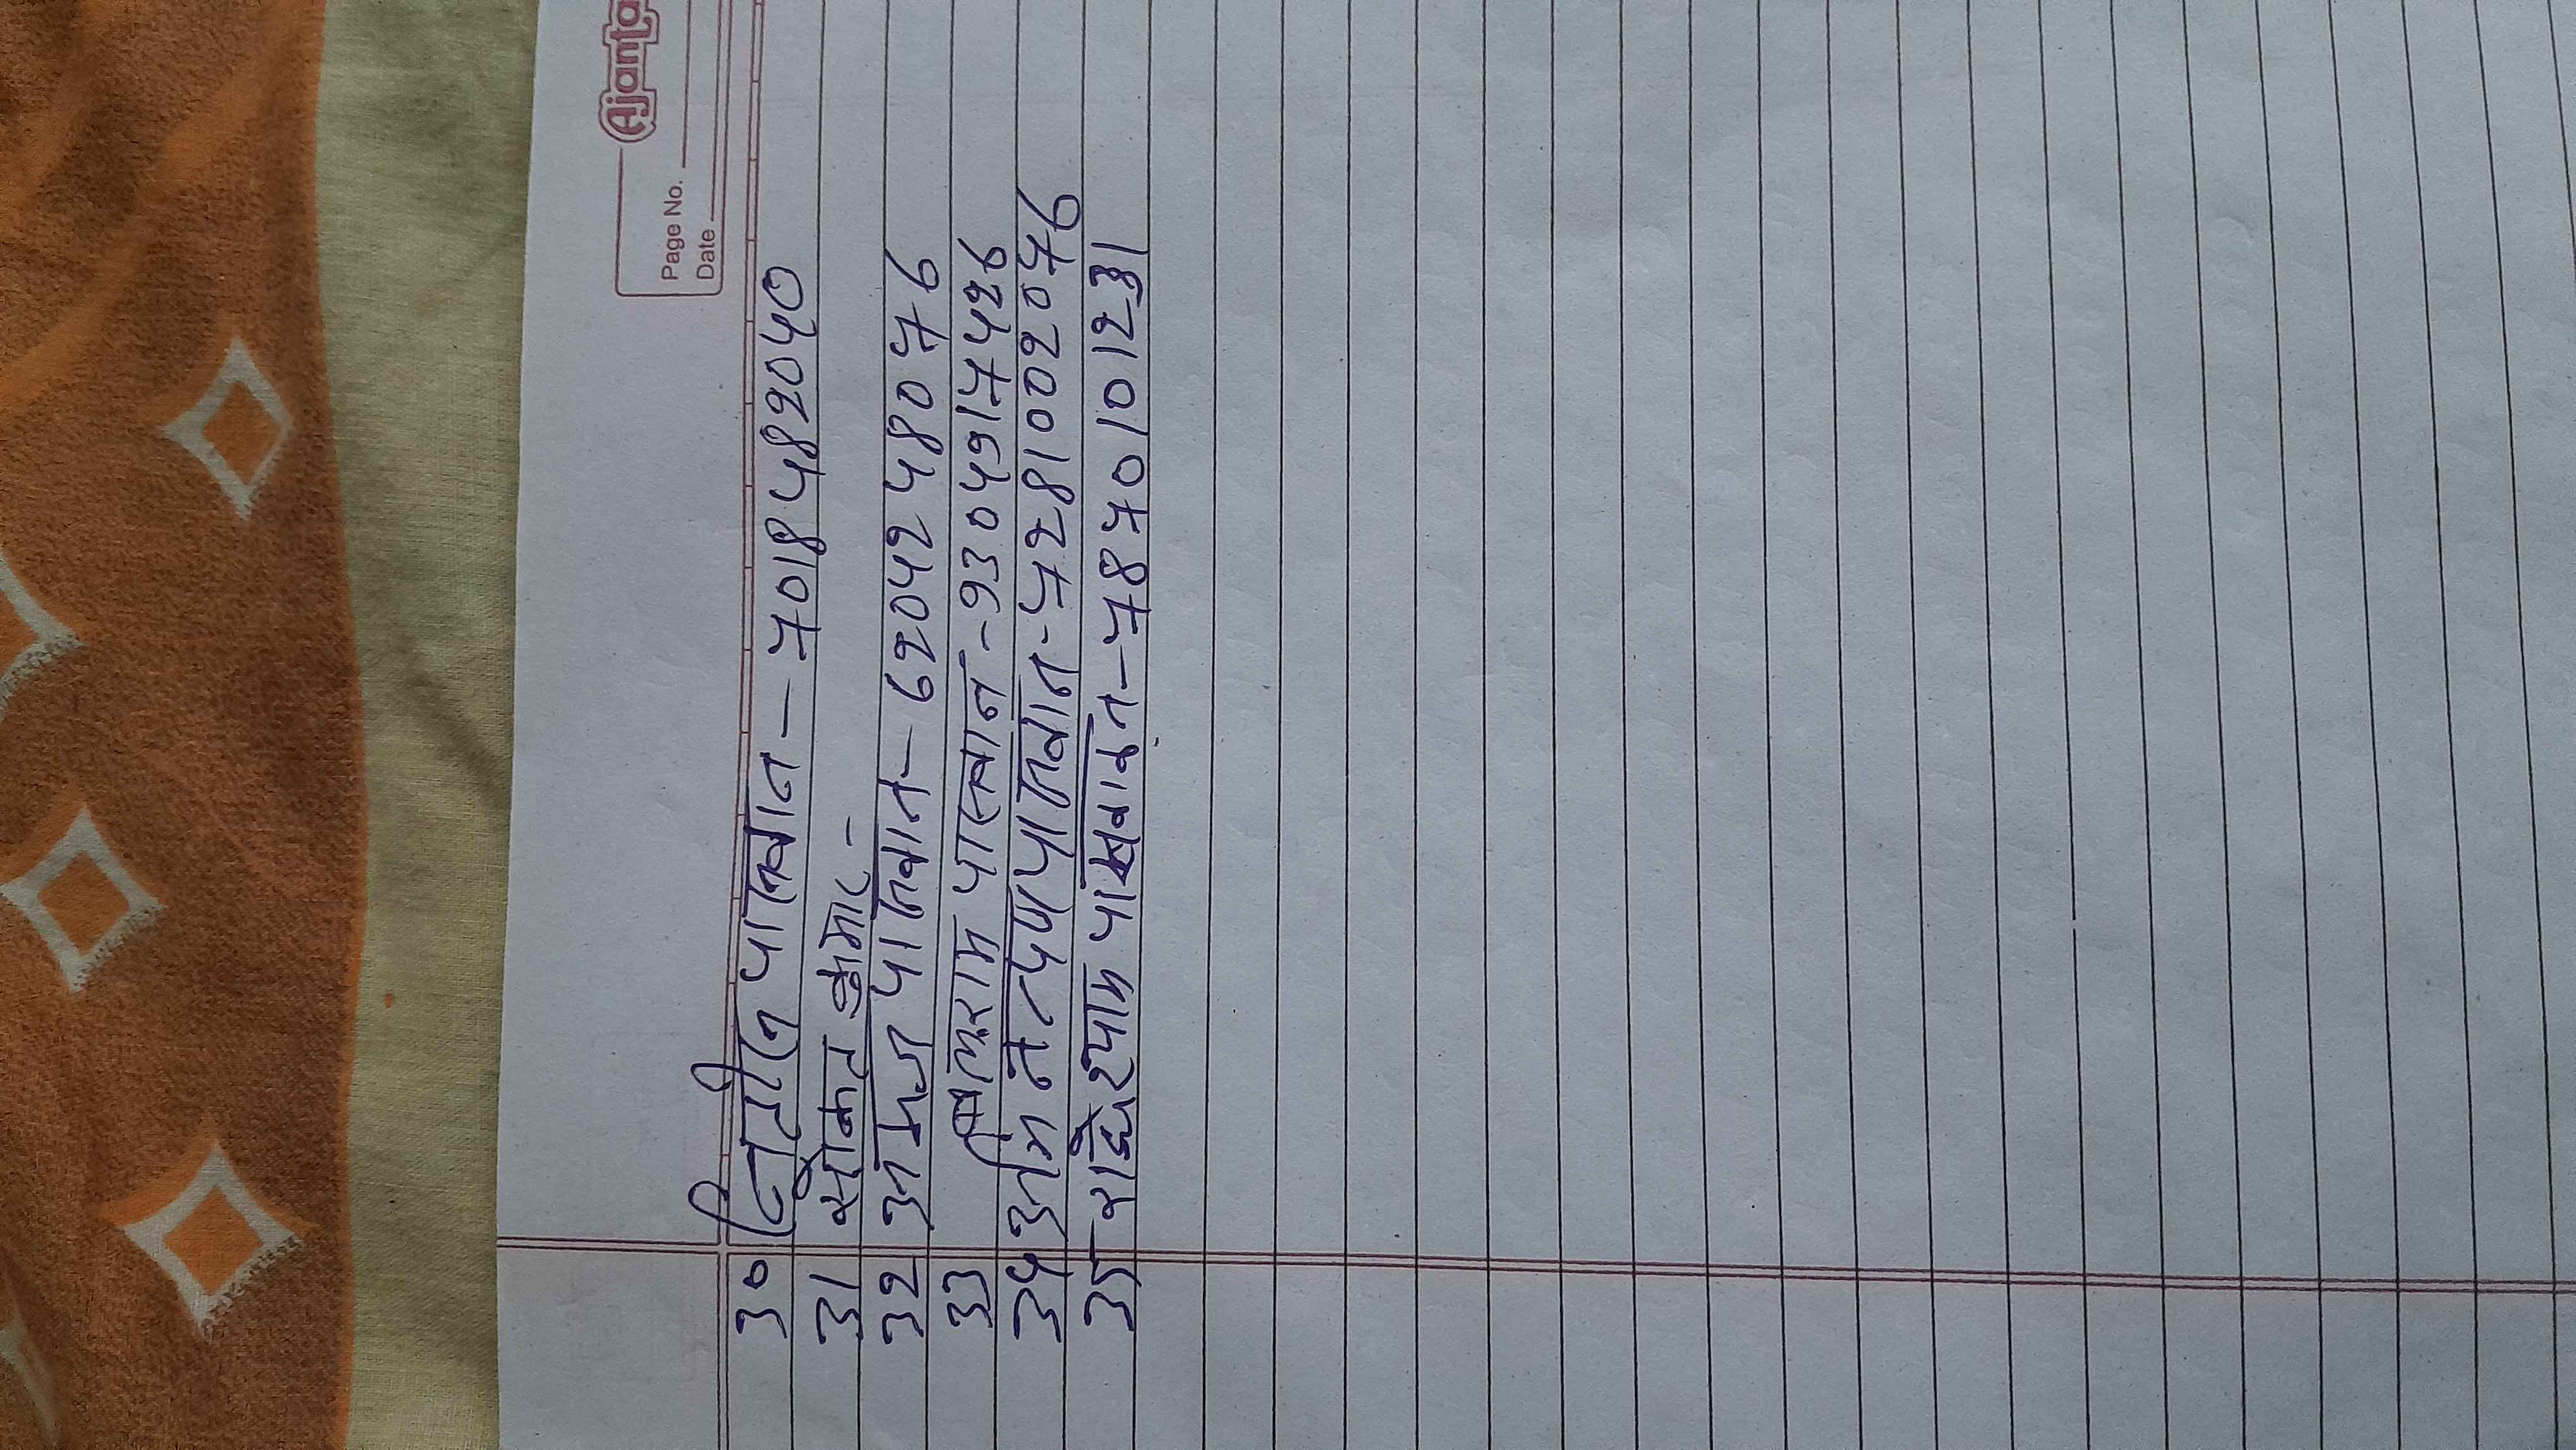 Ajanta
Page No.
Date
30 नितीश पासवान - 7018489040
31 सोनू कुमार -
32 अजय पासवान - 6204248076
33 शिवराम पासवान - 9304917426
34 पासवान - 7281002076
35 राधेश्याम पासवान - 7870101231